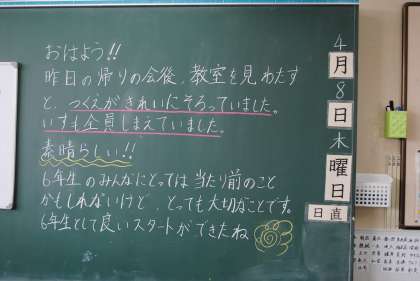 おはよう!!
昨日の帰りの会後、教室を見わたす
と、つくえがきれいにそろっていました。
いすも全員しまえていました。
素晴らしい!!
6年生のみんなにとっては当たり前のこと
かもしれないけど、とっても大切なことです。
6年生として良いスタートができたね
4月8日木曜日
日直